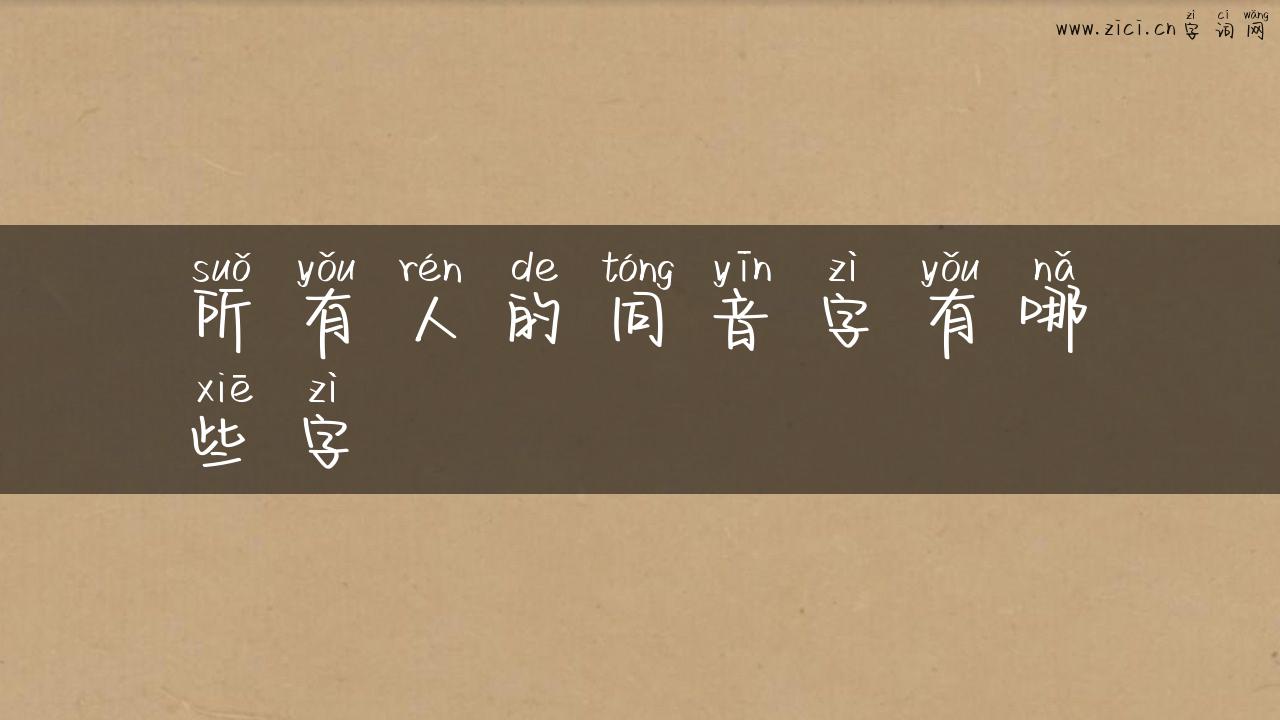 www.zici.cn 字词网
zì cí wǎng
suǒ yǒu rén de tóng yīn zì yǒu nǎ
所有人的同音字有哪
xiē zì
些字